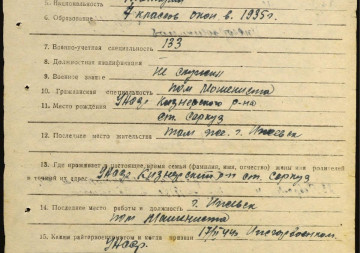 6. Образование 7 классов окон. в. 1935 г.
7. Военно-учетная специальность 133
8. Должностная квалификация
9. Военное звание не служил
10. Гражданская специальность пом машиниста
11. Место рождения УАССР Кизнерского р-на
ст. Саркуз
12. Последнее место жительства г. Ижевск
13. Где проживает в настоящее время семья (фамилия, имя, отчество) жены или родителей
и точный их адрес УАССР Кизнерский р-н ст. Саркуз
14. Последнее место работы и должность г. Ижевск
пом машиниста
15. Каким райгорвоенкоматом и когда призван
УАССР.